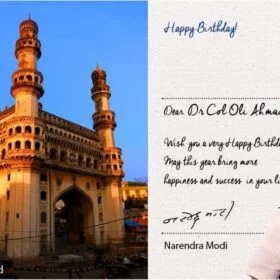 Happy Birthday!
Dear Dr Col Oli Ahmad
Wish you a very Happy Birthday
May this year bring more
happiness and success in your li
नरेन्द्र मोदी
Narendra Modi
d